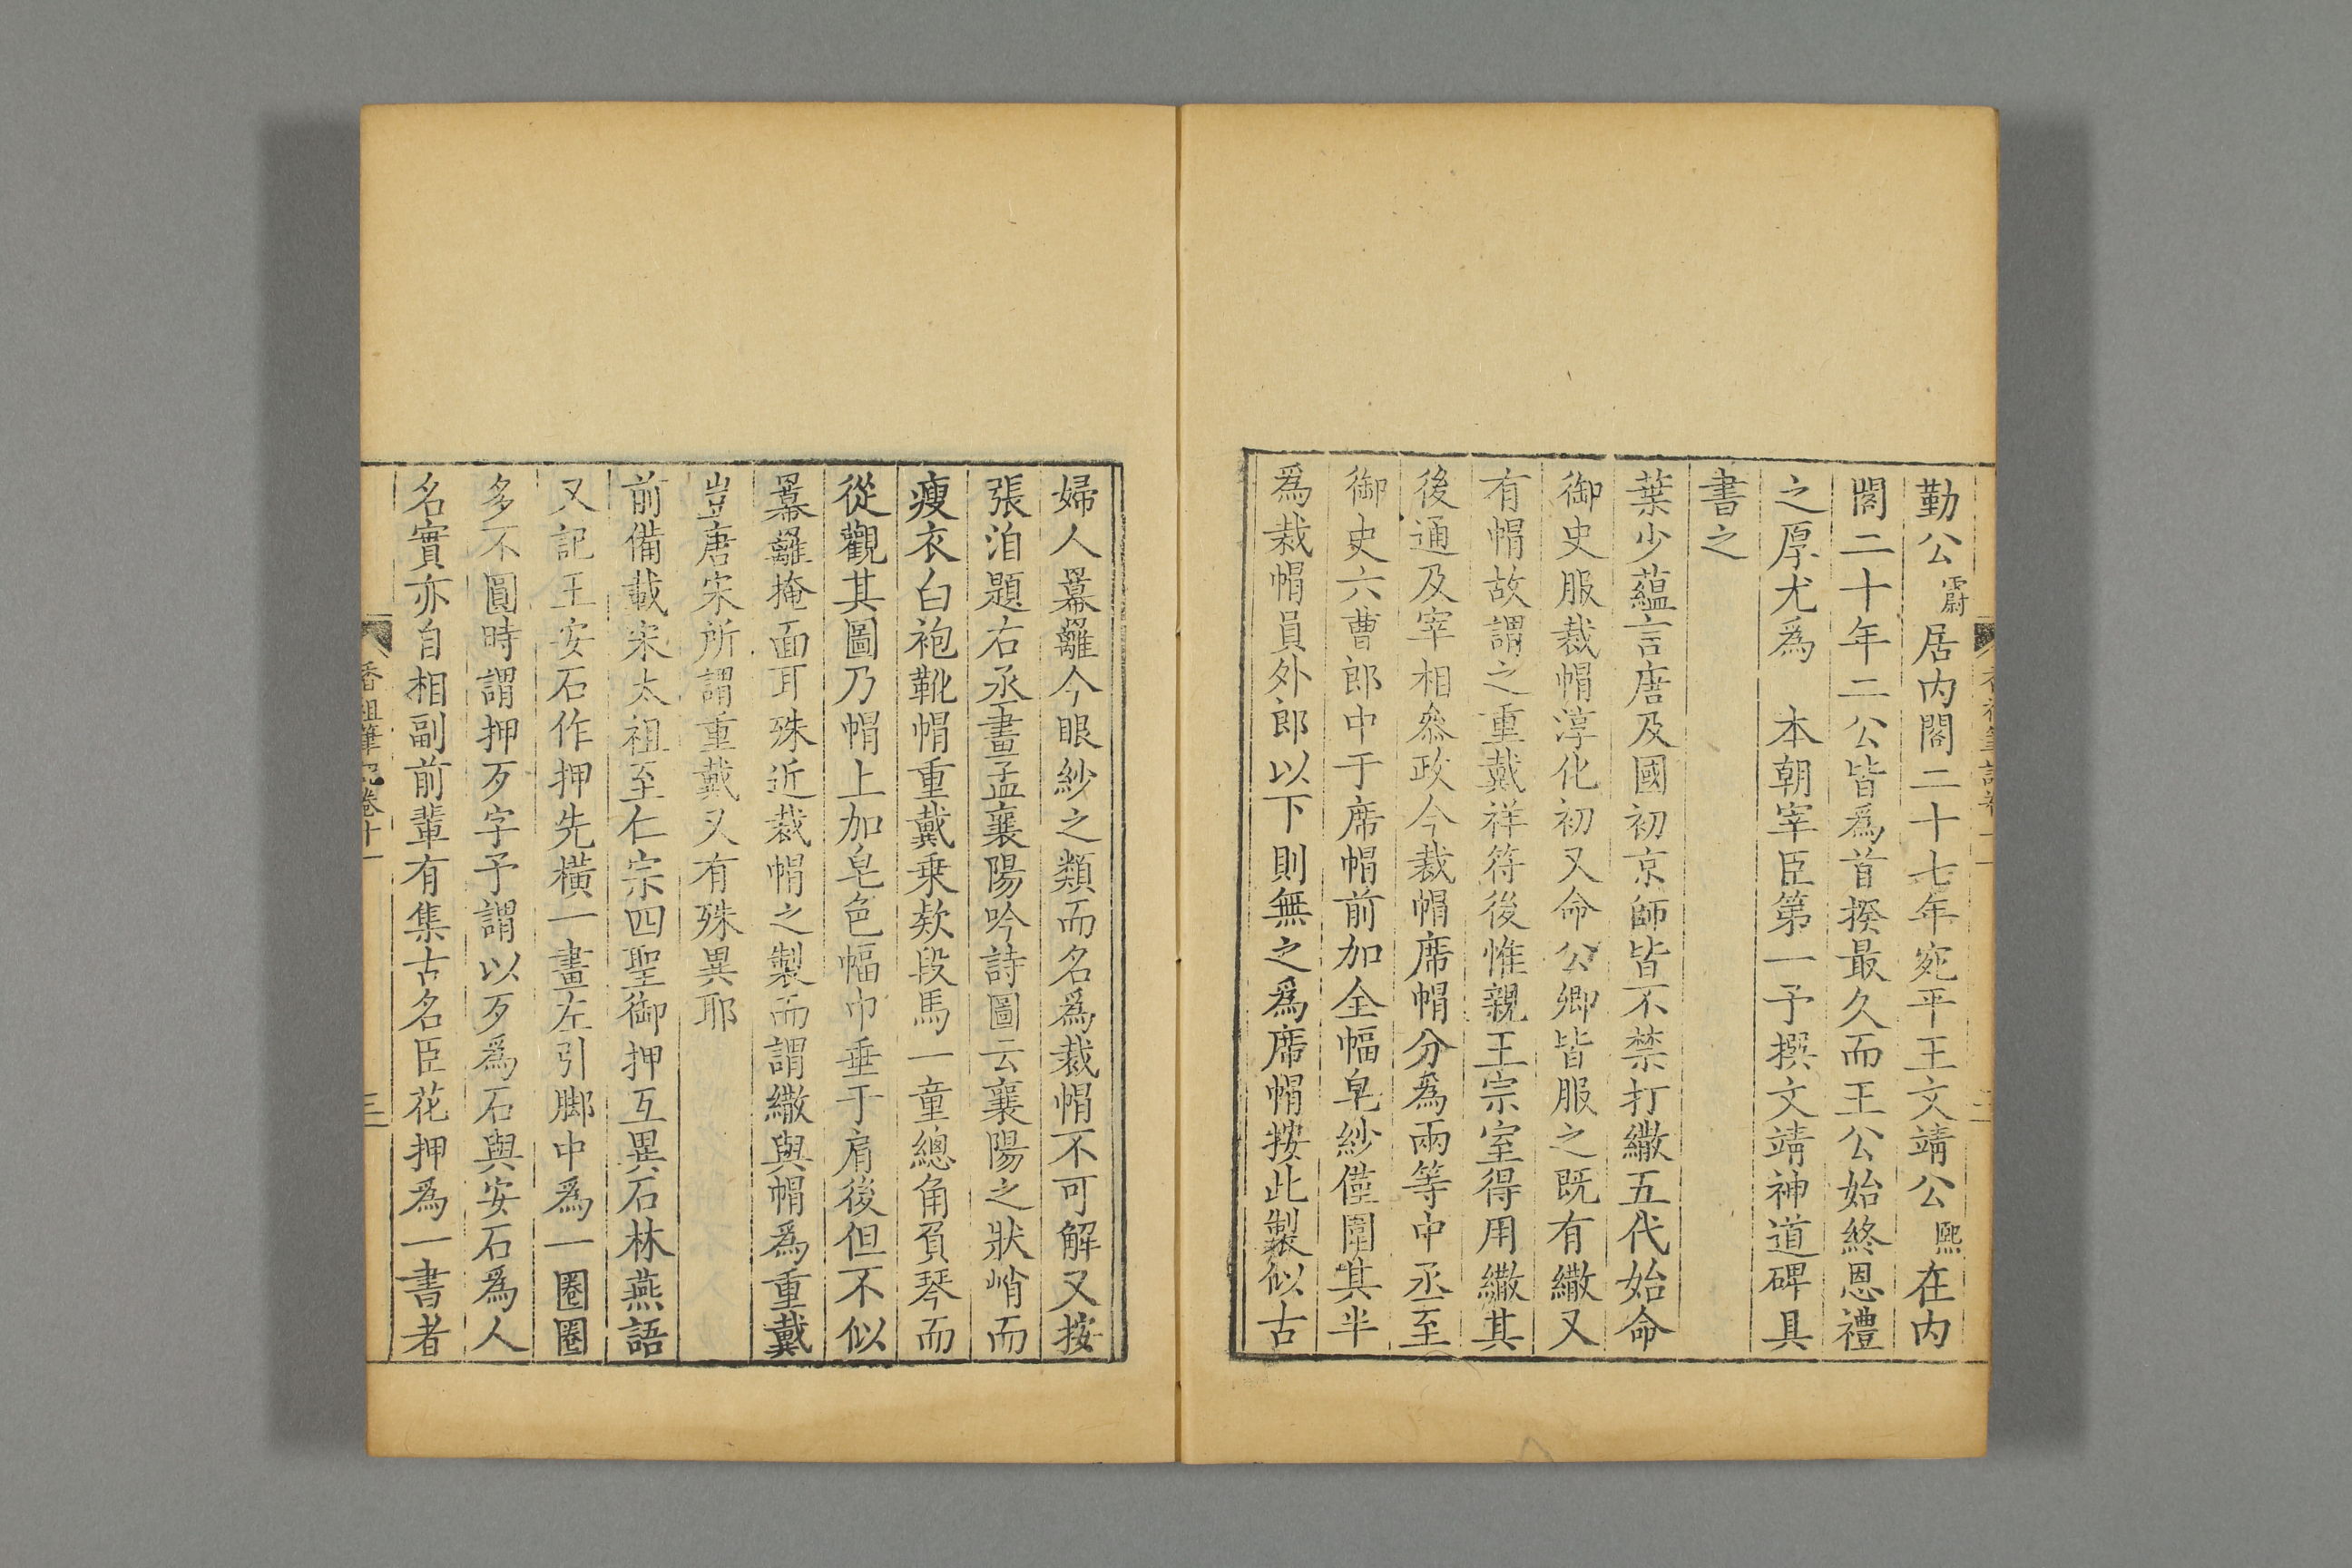 勤公霨居内閣二十七年宛平王文靖公熙在内
閣二十年二公皆爲首揆最久而王公始終恩禮
之厚尤爲　本朝宰臣第一予撰文靖神道碑具
書之
葉少蘊言唐及國初京師皆不禁打繖五代始命
御史服裁帽淳化初又命公卿皆服之既有繖又
有帽故謂之重戴祥符後惟親王宗室得用繖其
後通及宰相叅政今裁帽席帽分為兩等中丞至
御史六曹郎中于席帽前加全幅皂紗僅圍其半
爲裁帽員外郎以下則無之爲席帽按此製似古
婦人羃䍦今眼紗之類而名爲裁帽不可解又按
張洎題右丞畫孟襄陽吟詩圖云襄陽之狀峭而
瘦衣白袍靴帽重戴乗欵段馬一童總角負琴而
從觀其圖乃帽上加皂色幅巾垂于肩後但不似
羃䍦掩面耳殊近裁帽之製而謂繖與帽爲重戴
豈唐宋所謂重戴又有殊異耶
前備載宋太祖至仁宗四聖御押互異石林燕語
又記王安石作押先橫一畫左引脚中爲一圈圈
多不圓時謂押歹字予謂以歹爲石與安石爲人
名實亦自相副前輩有集古名臣花押爲一書者
香祖筆記卷十一
三